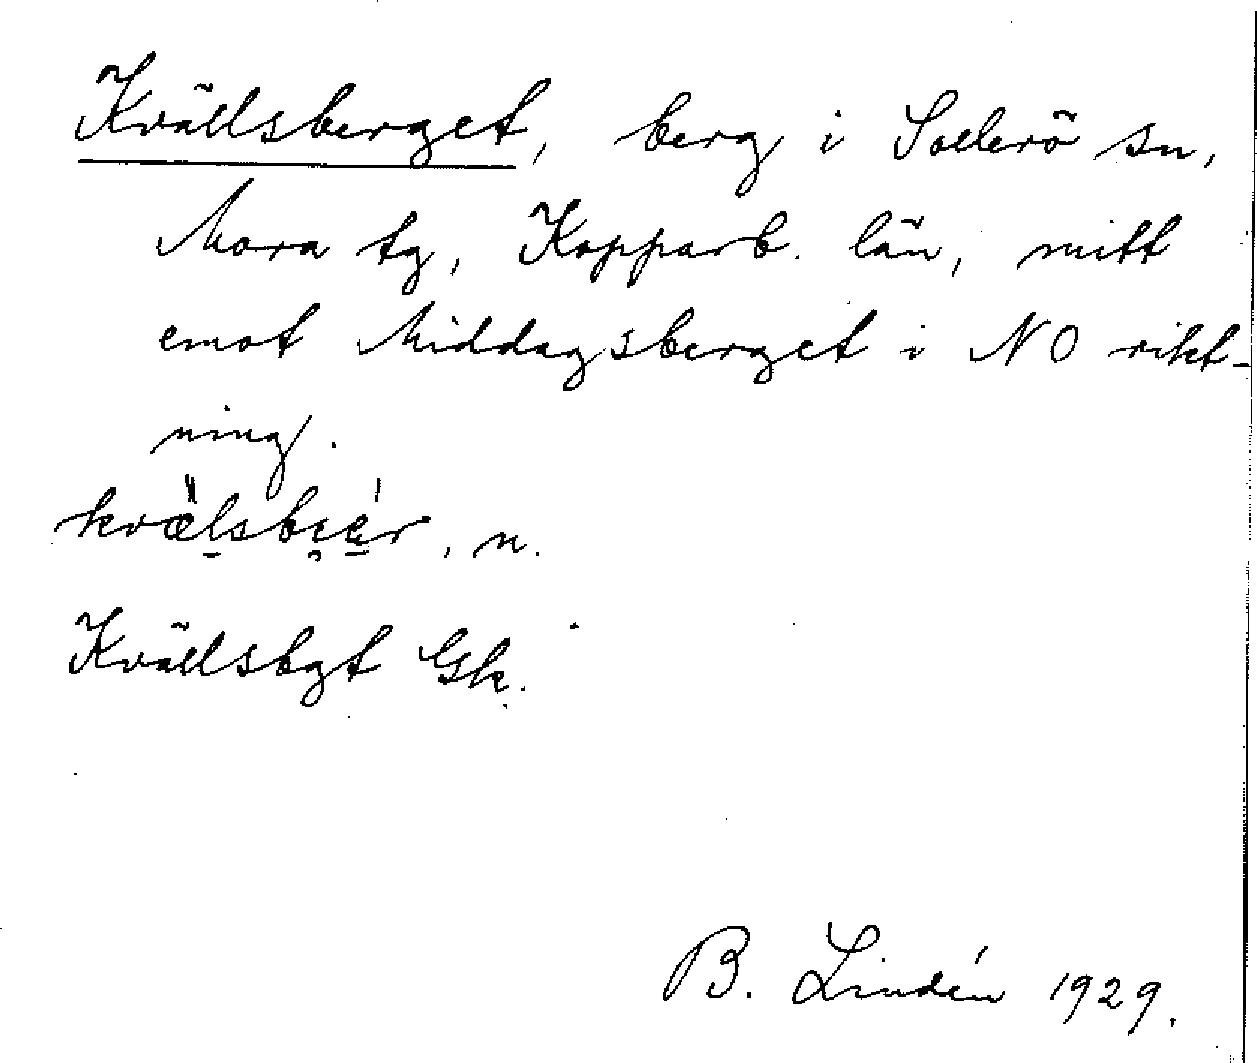 Kvällsberget, berg i Sollerö sn,
Mora tg, Kopparb. län, mitt
emot Middagsberget i NO rikt-
ning.
kvälsbıér, n.
Kvällsbgt Gk.
B. Lindén 1929.